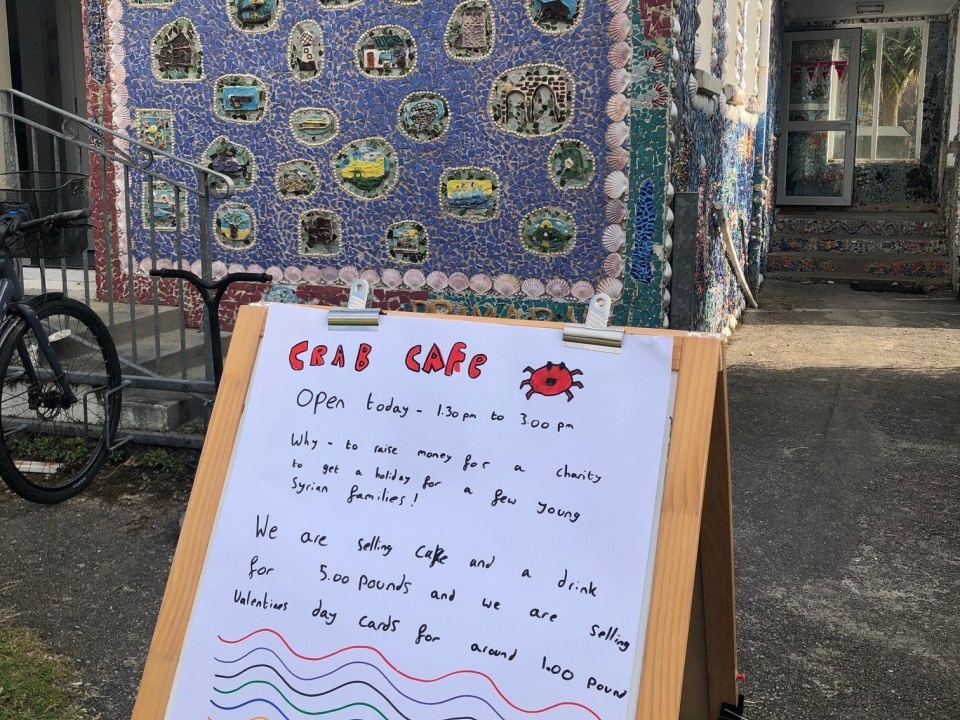 CRAB CAFE
Open today - 1.30 pm to 3.00 pm
Why - to raise money for a charity
to get a holiday for a few young
Syrian families!
We are selling cake and a drink
for 5.00 pounds and we are selling
Valentines day cards for around 1.00 pound